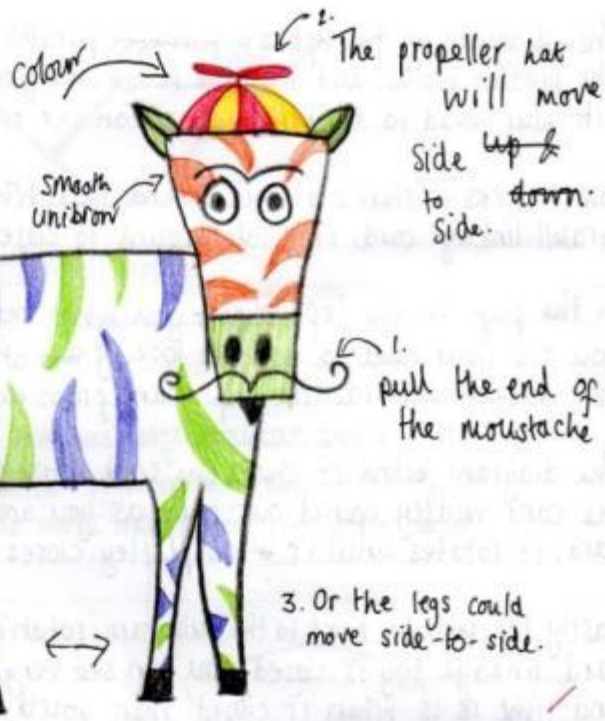 colour
2.
The propeller hat
will move
side up &
to down.
side.
smooth
unibrow
1.
pull the end of
the moustache
3. Or the legs could
move side-to-side.